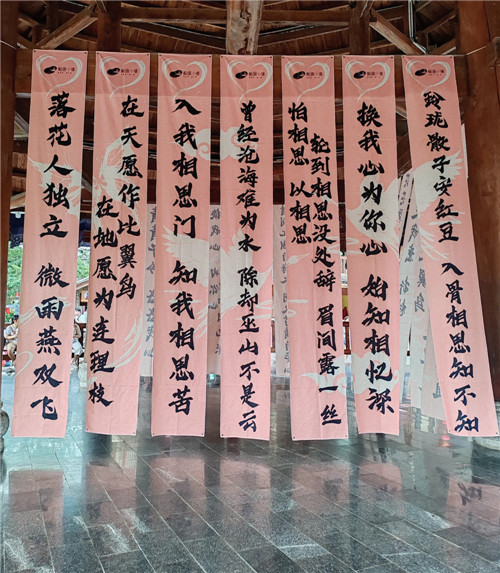 玲珑骰子安红豆 入骨相思知不知
换我心为你心 始知相忆深
怕相思 以相思
轮到相思没处辞 眉间露一丝
曾经沧海难为水 除却巫山不是云
入我相思门 知我相思苦
在天愿作比翼鸟
在地愿为连理枝
落花人独立 微雨燕双飞